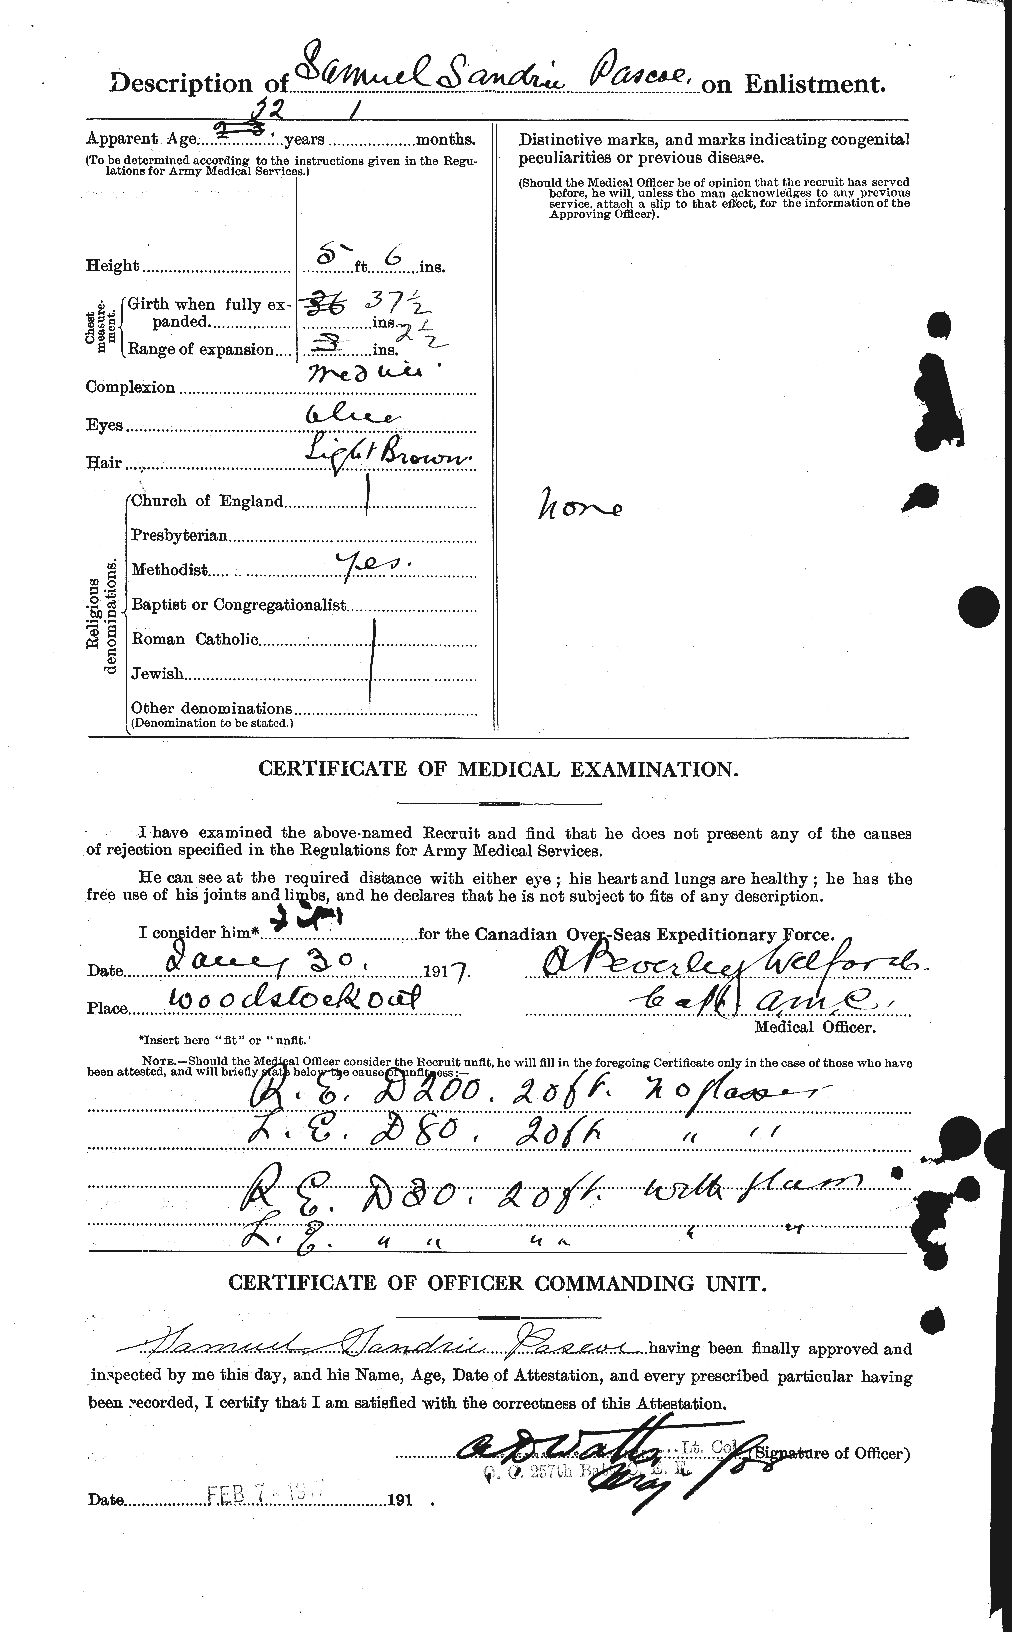 Description of Samuel Sandrie Pascoe. on Enlistment.
32 1
Apparent Age 23 years months.
(To be determined according to the instructions given in the Regu-
lations for Army Medical Services.)
Height 5 ft. 6 ins.
Chest measure-
ment.
Girth when fully ex-
panded 36 37½ ins.
Range of expansion 3 ins. 2½
Complexion
Eyes Blue
Hair Light Brown.
Religious
denominations.
Church of England
Presbyterian
Methodist Yes.
Baptist or Congregationalist
Roman Catholic
Jewish
Other denominations
(Denomination to be stated.)
Distinctive marks, and marks indicating congenital
peculiarities or previous disease.
(Should the Medical Officer be of opinion that the recruit has served
before, he will, unless the man acknowledges to any previous
service, attach a slip to that effect, for the information of the
Approving Officer).
None
CERTIFICATE OF MEDICAL EXAMINATION.
I have examined the above-named Recruit and find that he does not present any of the causes
of rejection specified in the Regulations for Army Medical Services.
He can see at the required distance with either eye; his heart and lungs are healthy; he has the
free use of his joints and limbs, and he declares that he is not subject to fits of any description.
I consider him* for the Canadian Over-Seas Expeditionary Force.
Date Jany 30. 1917.
Place Woodstock Ont
A Beverley Welford
Capt. A.M.C.
Medical Officer.
*Insert here "fit" or "unfit."
NOTE.—Should the Medical Officer consider the Recruit unfit, he will fill in the foregoing Certificate only in the case of those who have
been attested, and will briefly state below the cause of unfitness:—
R. E. D 200. 20 ft. No glasses
L. E. D 80. 20 ft " "
R. E. D 30. 20 ft. with glasses
L. E. " " " " " "
CERTIFICATE OF OFFICER COMMANDING UNIT.
Samuel Sandrie Pascoe having been finally approved and
inspected by me this day, and his Name, Age, Date of Attestation, and every prescribed particular having
been recorded, I certify that I am satisfied with the correctness of this Attestation.
Lt. Col. (Signature of Officer)
O. C. 257th
Date FEB 7 191 .